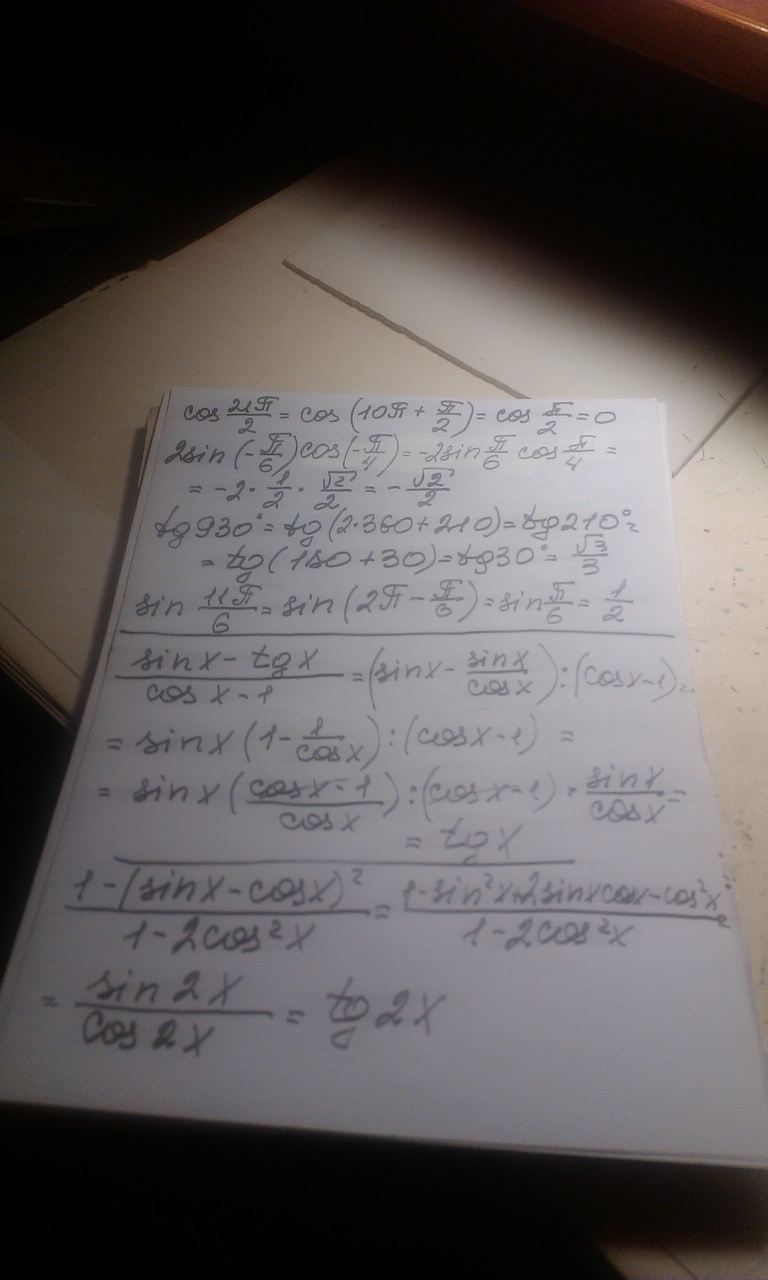 cos 21π/2 = cos (10π + π/2) = cos π/2 = 0
2sin (-π/6) cos (-π/4) = -2sin π/6 cos π/4 =
= -2 · 1/2 · √2/2 = - √2/2
tg 930° = tg (2·360+210) = tg 210° =
= tg (180+30) = tg 30° = √3/3
sin 11π/6 = sin (2π - π/6) = sin π/6 = 1/2
(sin x - tg x)/(cos x - 1) = (sin x - sin x/cos x) : (cos x - 1) =
= sin x (1 - 1/cos x) : (cos x - 1) =
= sin x ((cos x - 1)/cos x) : (cos x - 1) = sin x/cos x =
= tg x
(1 - (sin x - cos x)²)/(1 - 2cos² x) = (1 - sin² x + 2 sin x cos x - cos² x)/(1 - 2cos² x) =
= sin 2x/cos 2x = tg 2x